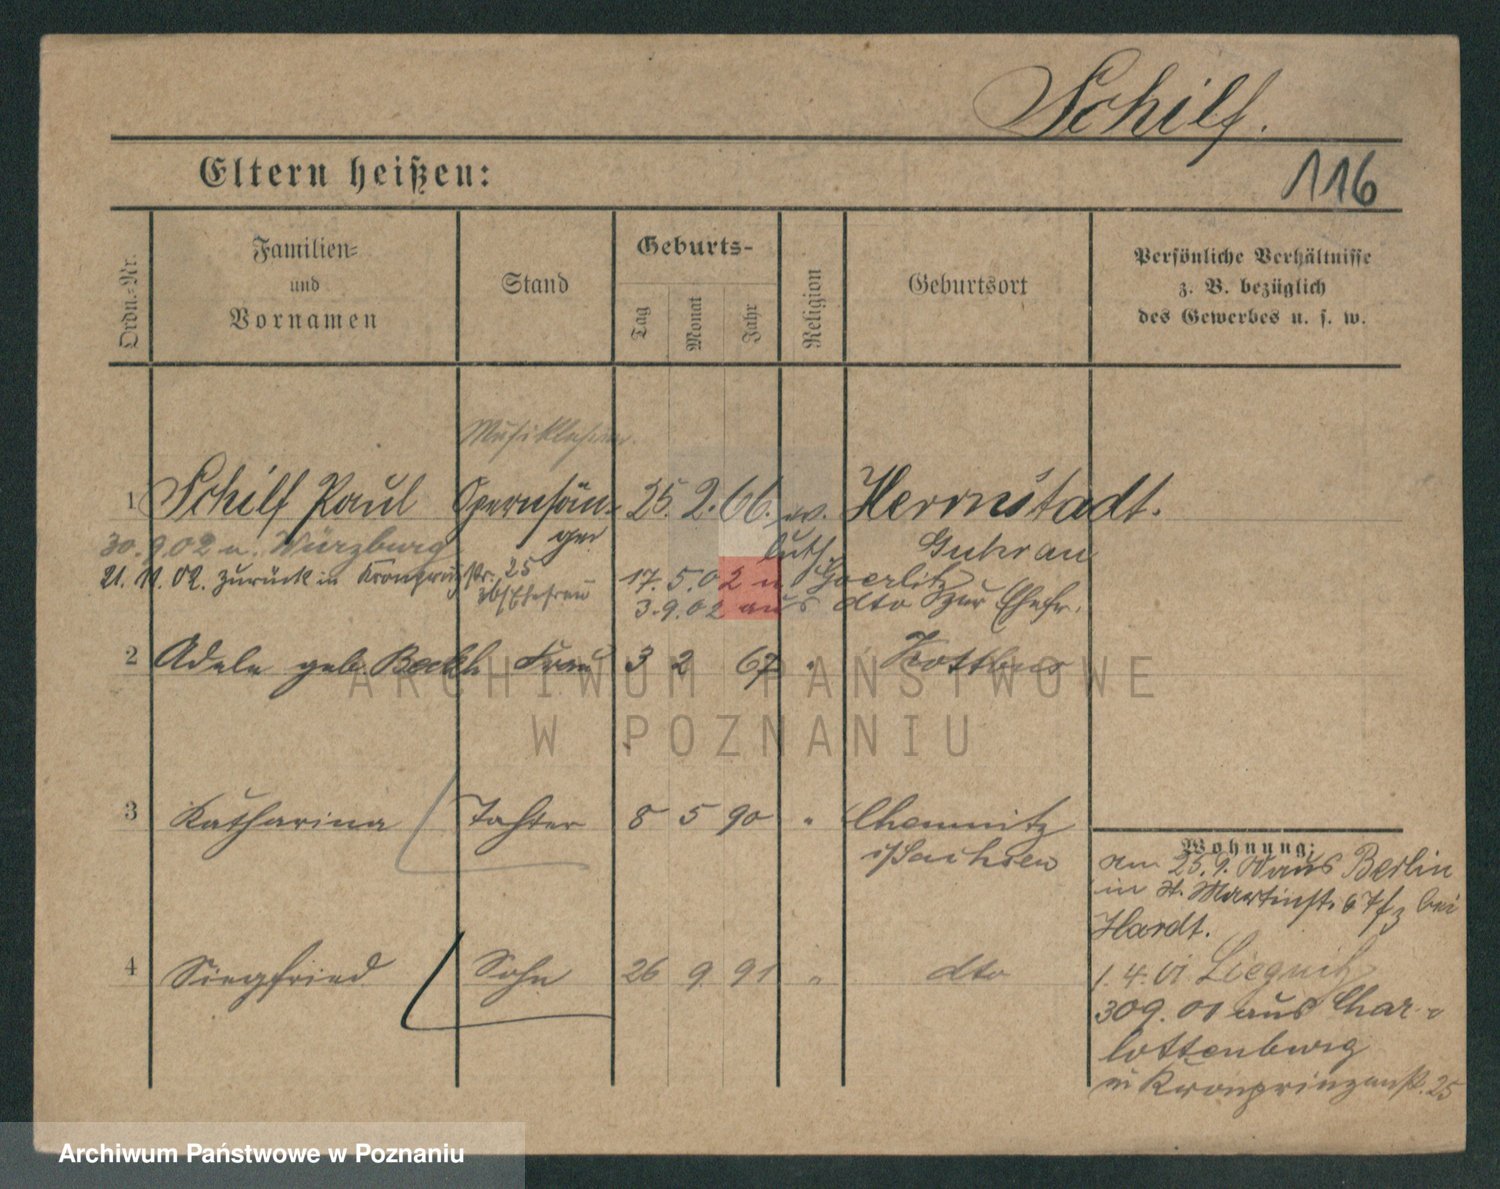 Schilf.
116
Eltern heißen:
Ordn.-Nr.
Familien-
und
Vornamen
Stand
Geburts-
Tag
Monat
Jahr
Religion
Geburtsort
Persönliche Verhältnisse
z. B. bezüglich
des Gewerbes u. s. w.
Musiklehrer
1 Schilf Paul Opernsän- 25. 2. 66. ev. Herrnstadt.
ger luth. Guhrau
30.9.02 n. Würzburg
21. 11. 02. zurück in Kronprinzstr. 25
17. 5. 02 n Goerlitz
3.9.02 aus dto zur Ehefr.
2 Adele geb. Frau 3 2 67 " Kottbus
3 Katharina Tochter 8 5 90 " Chemnitz
i/Sachsen
4 Siegfried Sohn 26 9. 91 " dto
Wohnung:
am 25.9.00 aus Berlin
in St. Martinstr. 67 bei
Hardt.
1. 4. 01 Liegnitz
30 9. 01 aus Char-
lottenburg
n Kronprinzenstr. 25
ARCHIWUM PAŃSTWOWE
W POZNANIU
Archiwum Państwowe w Poznaniu